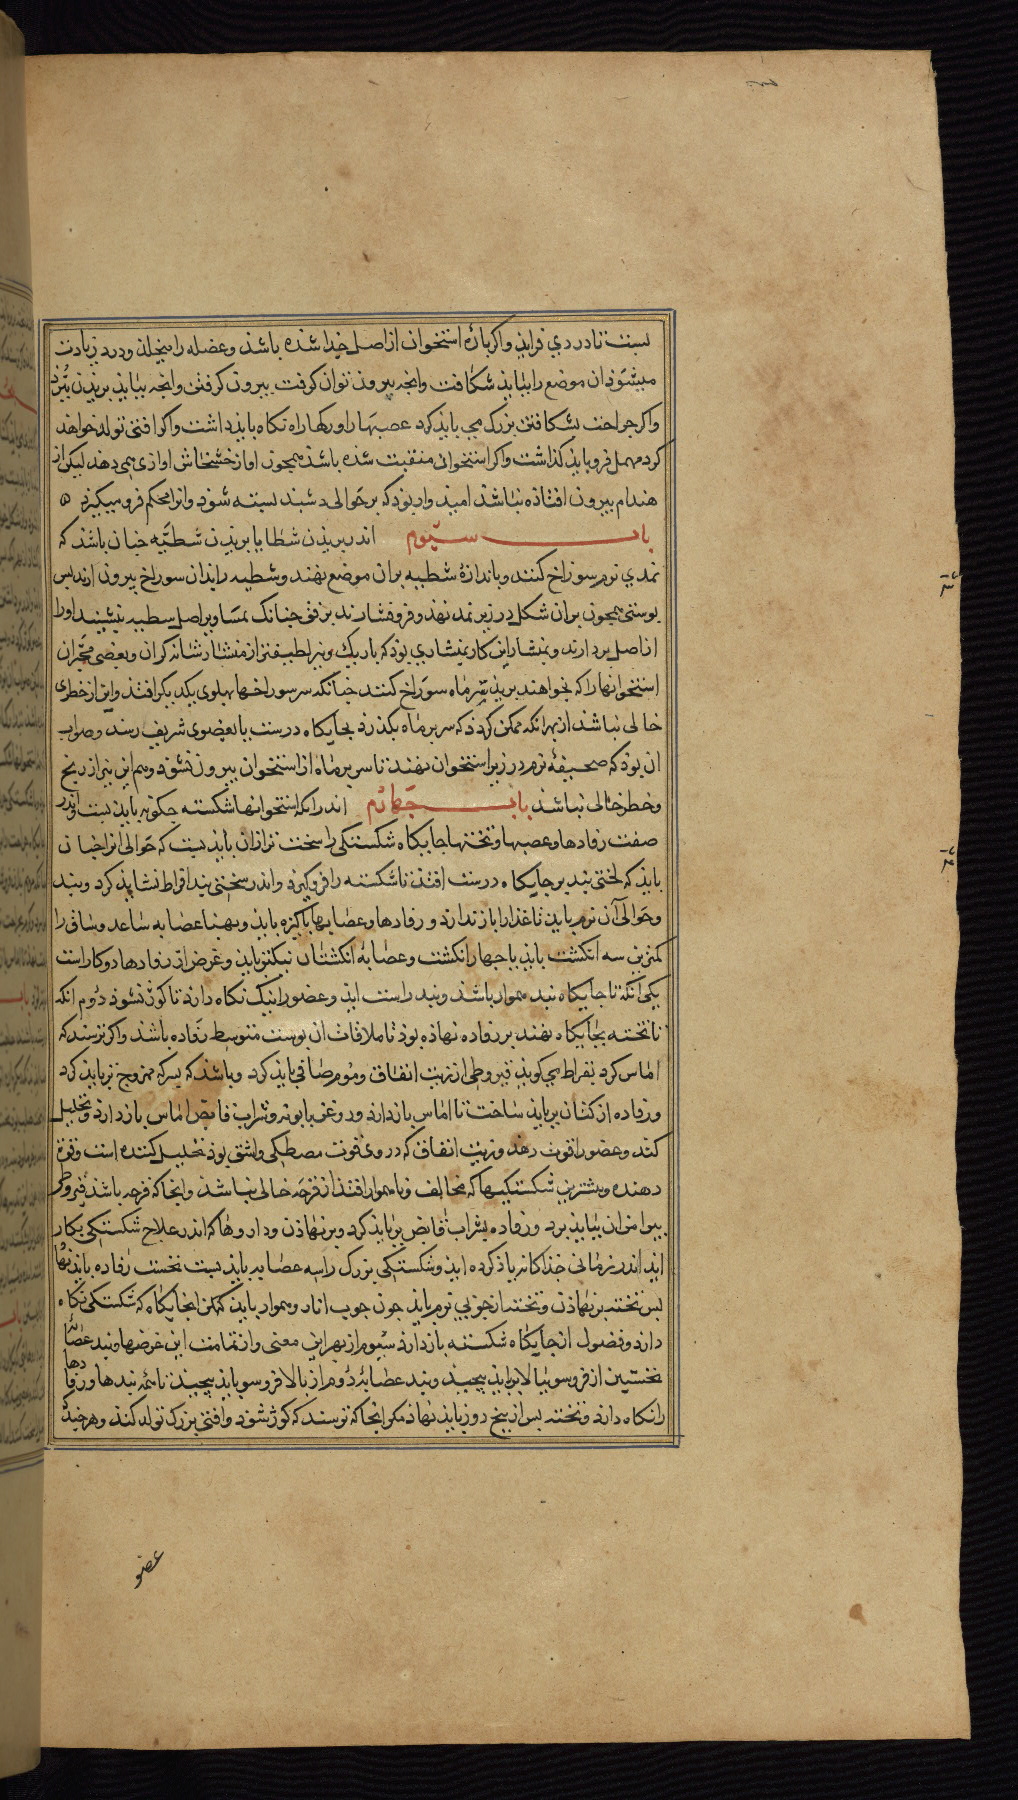 بست تا در دی فراید واکر باره استخوان از اصل جدا شده باشد و عضله را میخلد و درد زیادت
میشود ان موضع را بباید شکافت وانجه بیرون توان کرفت بیرون کرفتن وانجه بباید بریدن ببرد
واکر جراحت بشکافتن بزرک می باید کرد عصبها را و رکها را نکاه باید داشت واکر افتی تولد خواهد
کرد مهمل فرو باید کذاشت واکر استخوان متفتت شده باشد همجون اواز خشخاش اوازی می دهد لیکن از
هندام بیرون افتاده نباشد امید وار بود که بر حوالی دشبد بسته شود وانرا محکم فرو میکیرد ه
باب سیّوم اندر بریدن شظایا بریدن شظیّه جنان باشد که
نمدی نرم سوراخ کنند و باندازهٔ شظیه بران موضع نهند و شظیه را ازان سوراخ بیرون ارند بس
بوستی همجون بران شکل در زیر نمد نهند و فرو فشارند برفق جنانک بر اصل شظیه بنشیند او را
از اصل بردارند و بمنشار این کار بمنشاری بود که باریک و لطیفتر از منشار شانه کران و بعضی مجبّران
استخوانها را که بخواهند برید ببرماه سوراخ کنند جنانکه سر سوراخها بهلوی یکدیکر افتد واین از خطری
خالی نباشد از بهر انکه ممکن کردد که سر برماه بکذرد بجایکاه درست یا بعضوی شریف رسد وصواب
ان بود که صحیفهٔ نرم در زیر استخوان نهند تا سر برماه از استخوان بیرون نشود وهم این نیز از رنج
وخطر خالی نباشد باب جهارم اندر انکه استخوانها شکسته جکونه باید بست واندر
صفت رفادها وعصبها و تختها جایکاه شکستکی را سخت تر ازان باید بست که حوالی انرا جنان
باید که لختی بند بر جایکاه درست افتد تا شکسته را فرو کیرد واندر سختی بند افراط نشاید کرد وبند
وحوالی آن نرم باید تا غذا را باز ندارد و رفادها وعصابها باکیزه باید وبهنا عصابه ساعد وساق را
کمترین سه انکشت باید یا جهار انکشت وعصابهٔ انکشتان باید وغرض از رفادها دو کار است
یکی آنکه تا جایکاه بند هموار باشد وبند راست اید وعضو را نیک نکاه دارد تا کوژ نشود دوم انکه
تا تخته بجایکاه نهند بر رفاده نهاده بود تا ملاقات ان بوست متوسط رفاده باشد واکر ترسند که
اماس کرد بقراط می کوید قیروطی از زیت انفاق وموم صافی باید کرد وباشد که بسرکه ممزوج تر باید کرد
ورفاده از کتان بر باید ساخت تا اماس باز دارد و روغن بابونه وشراب قابض اماس باز دارد وتحلیل
کند وعضو را قوت دهد وزیت انفاق که در وی قوت مصطکی واشق بود تحلیل کننده است وقوة
دهنده وبیشترین شکستکیها که مخالف و ناهموار افتد از قرحه خالی نباشد وانجا که قرحه باشد قیروطی
بیرامن ان بباید برد ورفاده بشراب قابض تر باید کرد وبر نهادن وداروها که اندر علاج شکستکی بکار
اید اندر زمانی جداکانه یاد کرده اید وشکستکی بزرک را سه عصابه باید بست نخست رفاده باید نهاد
بس تخته بر نهادن وتخته از جوبی نرم باید جون جوب انار وهموار باید کردن انجایکاه که شکستکی نکاه
دارد وفضول از جایکاه شکسته باز دارد سیوم از بهر این معنی واز تمامت این غرضها وبند عصابهٔ
نخستین از فرو سو ببالا براید بیجید وبند عصابهٔ دوم از بالا فرو سو باید بیجید تا همه بندها ورفادها
را نکاه دارد وتخته بس از بنج روز باید نهاد مکر انجا که ترسند که کوژ شود وافتی بزرک تولد کند وهرجند
عضو